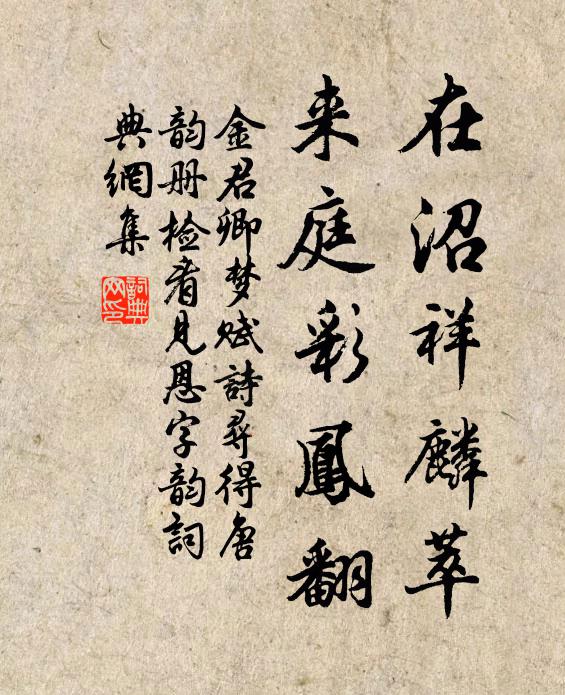 在沼祥麟萃
来庭彩鳳翻
金君卿梦赋詩尋得唐
韵册检看見恩字韵詞
典網集
詞典
网印